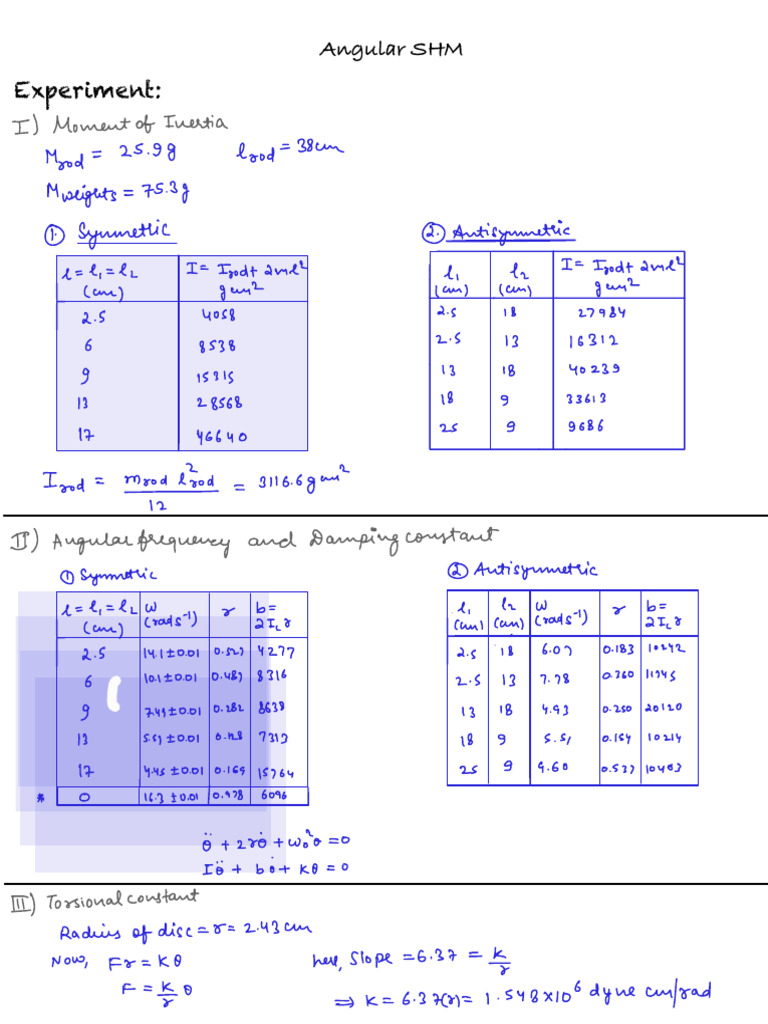 Angular SHM
Experiment:
I) Moment of Inertia
M_rod = 25.9g l_rod = 38cm
M_weights = 75.3g
① Symmetric
l = l₁ = l₂ (cm) | I = I_rod + 2ml² g cm²
2.5 | 4058
6 | 8538
9 | 15315
13 | 28568
17 | 46640
② Antisymmetric
l₁ (cm) | l₂ (cm) | I = I_rod + 2ml² g cm²
2.5 | 18 | 27984
2.5 | 13 | 16312
13 | 18 | 40239
18 | 9 | 33613
25 | 9 | 9686
I_rod = m_rod l²_rod / 12 = 3116.6 g cm²
II) Angular frequency and Damping constant
① Symmetric
l = l₁ = l₂ (cm) | ω (rad s⁻¹) | r | b = 2I_L r
2.5 | 14.1 ± 0.01 | 0.527 | 4277
6 | 10.1 ± 0.01 | 0.487 | 8316
9 | 7.49 ± 0.01 | 0.282 | 8638
13 | 5.51 ± 0.01 | 0.128 | 7313
17 | 4.45 ± 0.01 | 0.169 | 15764
* 0 | 16.3 ± 0.01 | 0.978 | 6096
② Antisymmetric
l₁ (cm) | l₂ (cm) | ω (rad s⁻¹) | r | b = 2I_L r
2.5 | 18 | 6.07 | 0.183 | 10242
2.5 | 13 | 7.78 | 0.360 | 11745
13 | 18 | 4.93 | 0.250 | 20120
18 | 9 | 5.51 | 0.154 | 10214
25 | 9 | 9.60 | 0.537 | 10403
θ̈ + 2rθ̇ + ω₀²θ = 0
Iθ̈ + bθ̇ + Kθ = 0
III) Torsional constant
Radius of disc = r = 2.43 cm
Now, Fr = Kθ here, Slope = 6.37 = K/r
F = K/r θ ⇒ K = 6.37(r) = 1.548×10⁶ dyne cm/rad